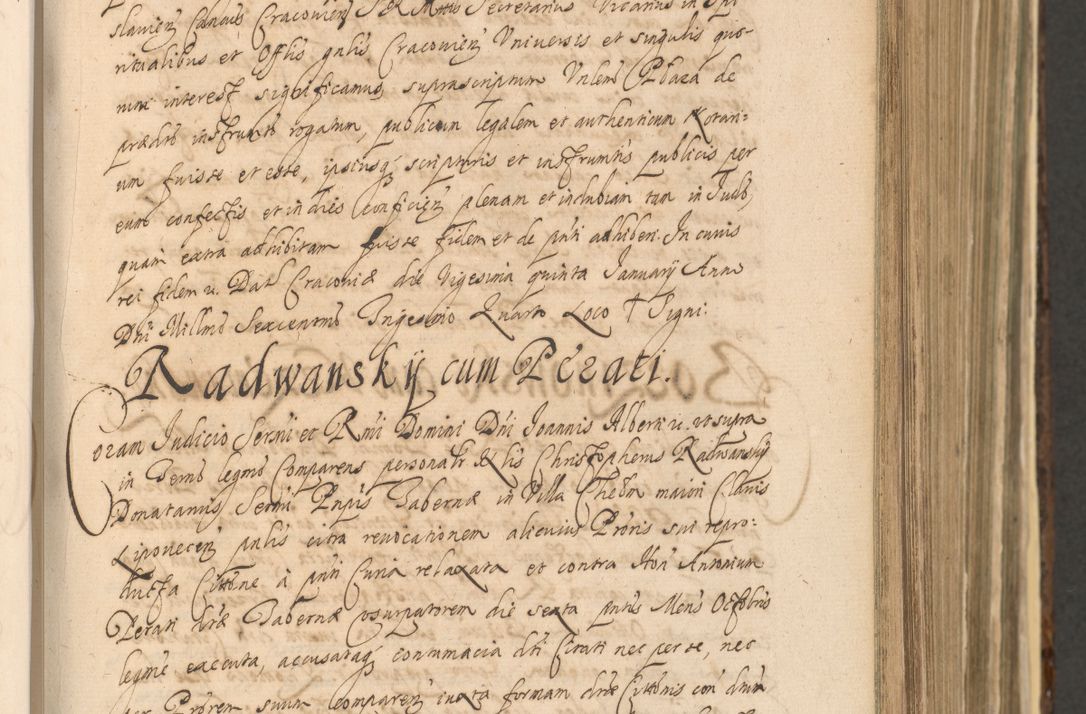 slavien Cancus Cracovien S R Mttis Secretarius Vicarius in Spi
ritualibus et Offlis gnlis Cracovien Universis et singulis quo-
rum interest significamus suprascriptum Unlem de
prædto instrumto rogatum, publicum legalem et authenticum Notari=
um fuisse et esse, ipsiusq scripturis et instrumtis publicis per
eum confectis et in dies conficien plenam et indubiam tam in Judo,
quam extra adhibitam fuisse fidem et de pnti adhiberi. In cuius
rei fidem u. Dat Cracoviæ die Vigesima quinta Januarij Anno
Dni Millmo Sexcentmo Trigesimo Quarto Loco † Signi.
Radwanskij cum Pezati.
Coram Judicio Sermi et Rmi Domini Dni Joannis Alberti u. ut supra
in Termo legmo Comparens personalr Christopherus Radwanskij
Donatarius Sermi Pnpis Tabernæ in Villa Chelm maiori Clavis
Lipovecen pnlis citra revocationem alicuius Proris sui repro=
ducta Cittone à pnti Curia relaxata et contra Hon Antonium
Perati dtæ Tabernæ usurpatorem die sexta pntis Mens Octobris
legme executa, accusataq contumacia dti Citati nec per se, nec
per Prorem suum comparen iuxta formam dtæ Cittonis con dnm